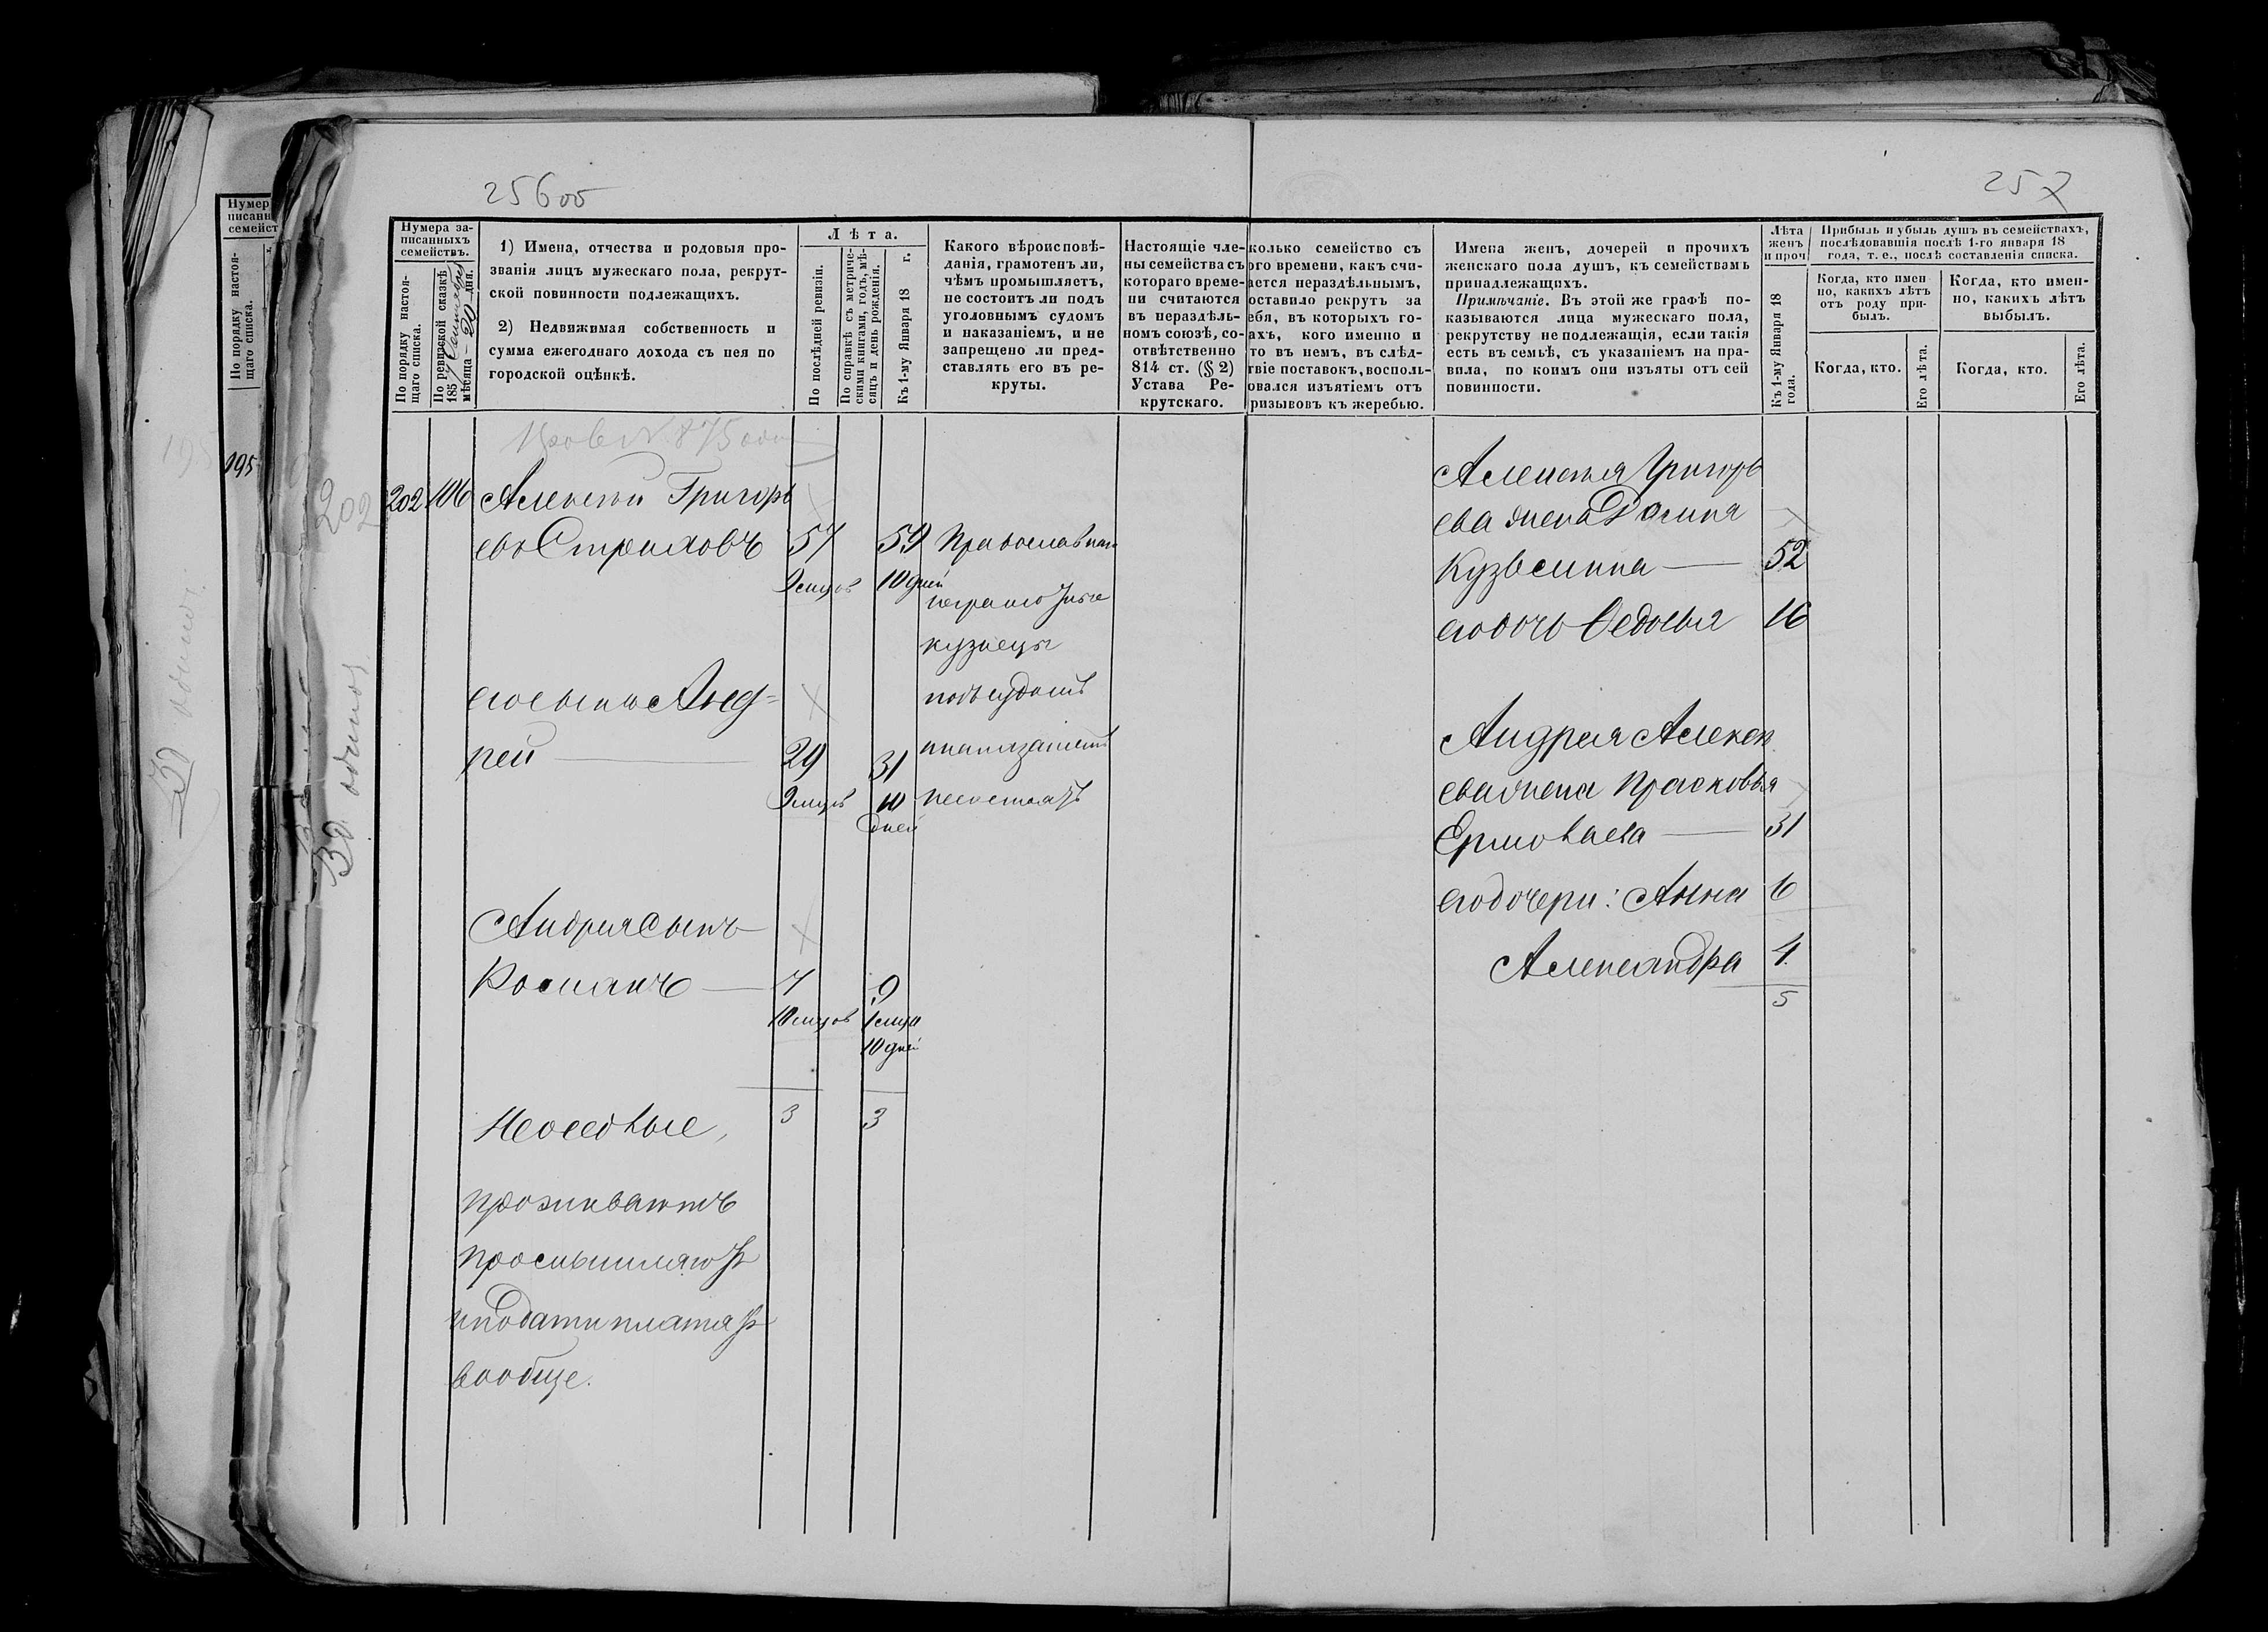 256 об
257
Нумера за-
писанныхъ
семействъ.
По порядку настоя-
щаго списка.
По ревизской сказкѣ
185 Сентября
мѣсяца 20 дня.
1) Имена, отчества и родовыя про-
званія лицъ мужескаго пола, рекрут-
ской повинности подлежащихъ.
2) Недвижимая собственность и
сумма ежегоднаго дохода съ нея по
городской оцѣнкѣ.
Лѣта.
По послѣдней ревизіи.
По справкѣ съ метриче-
скими книгами, годъ, мѣ-
сяцъ и день рожденія.
Къ 1-му Января 18 г.
Какого вѣроисповѣ-
данія, грамотенъ ли,
чѣмъ промышляетъ,
не состоитъ ли подъ
уголовнымъ судомъ
и наказаніемъ, и не
запрещено ли пред-
ставлять его въ ре-
круты.
Настоящіе чле-
ны семейства съ
котораго време-
ни считаются
въ нераздѣль-
номъ союзѣ, со-
отвѣтственно
814 ст. (§ 2)
Устава Ре-
крутскаго.
колько семейство съ
ого времени, какъ счи-
ается нераздѣльнымъ,
оставило рекрутъ за
ебя, въ которыхъ го-
ахъ, кого именно и
то въ немъ, въ слѣд-
твіе поставокъ, восполь-
овался изъятіемъ отъ
ризывовъ къ жеребью.
Имена женъ, дочерей и прочихъ
женскаго пола душъ, къ семействамъ
принадлежащихъ.
Примѣчаніе. Въ этой же графѣ по-
казываются лица мужескаго пола,
рекрутству не подлежащія, если такія
есть въ семьѣ, съ указаніемъ на пра-
вила, по коимъ они изъяты отъ сей
повинности.
Лѣта
женъ
и проч
Къ 1-му Января 18
года.
Прибыль и убыль душъ въ семействахъ,
послѣдовавшія послѣ 1-го января 18
года, т. е., послѣ составленія списка.
Когда, кто имен-
но, какихъ лѣтъ
отъ роду при-
былъ.
Когда, кто.
Его лѣта.
Когда, кто имен-
но, какихъ лѣтъ
выбылъ.
Когда, кто.
Его лѣта.
Нумер
писанн
семейст
По порядку настоя-
щаго списка.
195
202
202 106 Алексѣй Григорь
евъ 57 59 Православные
9 мцов 10 дней
неграмотные
кузнецы
его сынъ Анд=
подъ судомъ
рей 29 31 и наказаніем
9 мцов 10 дней
несостоятъ
Андрея сынъ
Романъ 7 9
10 мцов 1 мца
10 дней
3 3
Неоседлые,
проживаютъ
промышляютъ
и подати платятъ
вообще.
Алексѣя Григорь
ева жена
Кузьмина 52
его дочь Федосья 16
Андрея Алексѣ
ева жена Прасковья
31
его дочери: Анна 6
Александра 4
5